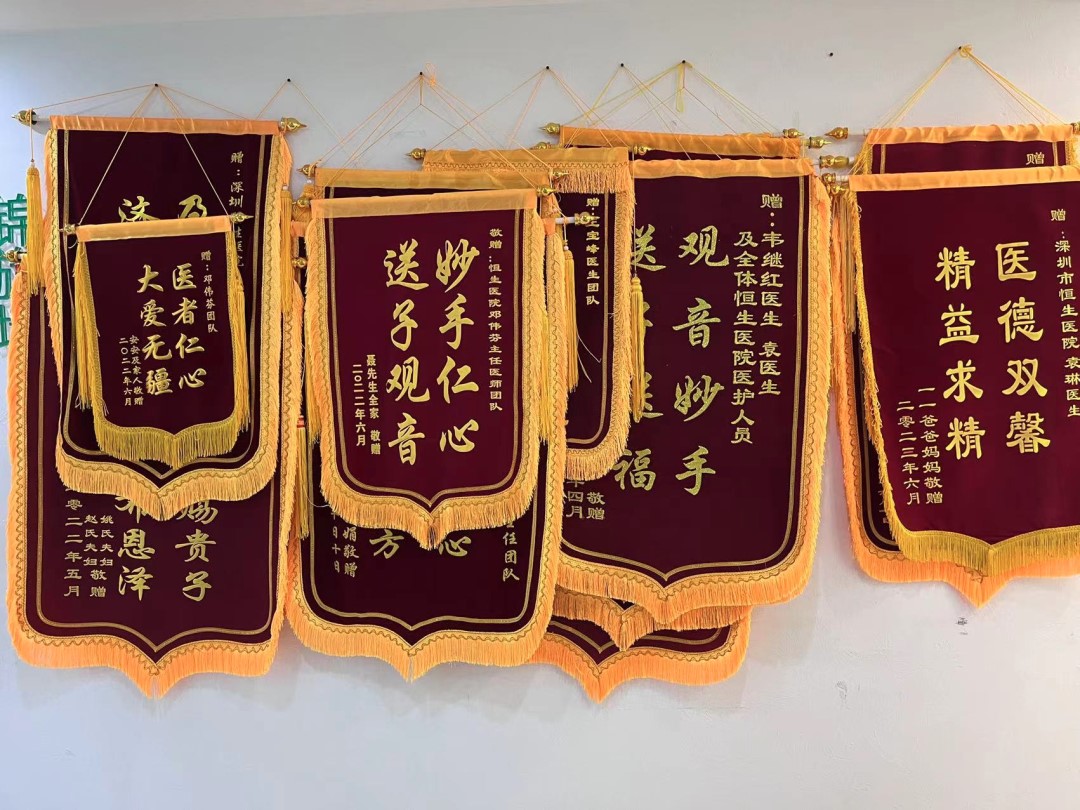 赠:深圳
赠:邓伟芬团队
医者仁心
大爱无疆
安安及家人敬赠
二〇二二年六月
赐贵子
恩泽
姚氏夫妇
赵氏夫妇敬赠
二二年五月
敬赠:恒生医院邓伟芬主任医师团队
妙手仁心
送子观音
聂先生全家 敬赠
二〇二二年六月
任团队
心
方
娟敬赠
日十日
宝峰医生团队
赠:韦继红医生 袁医生
及全体恒生医院医护人员
观音妙手
送
福
敬赠
年四月
赠
赠:深圳市恒生医院 袁琳医生
医德双馨
精益求精
一一爸爸妈妈敬赠
二〇二三年六月